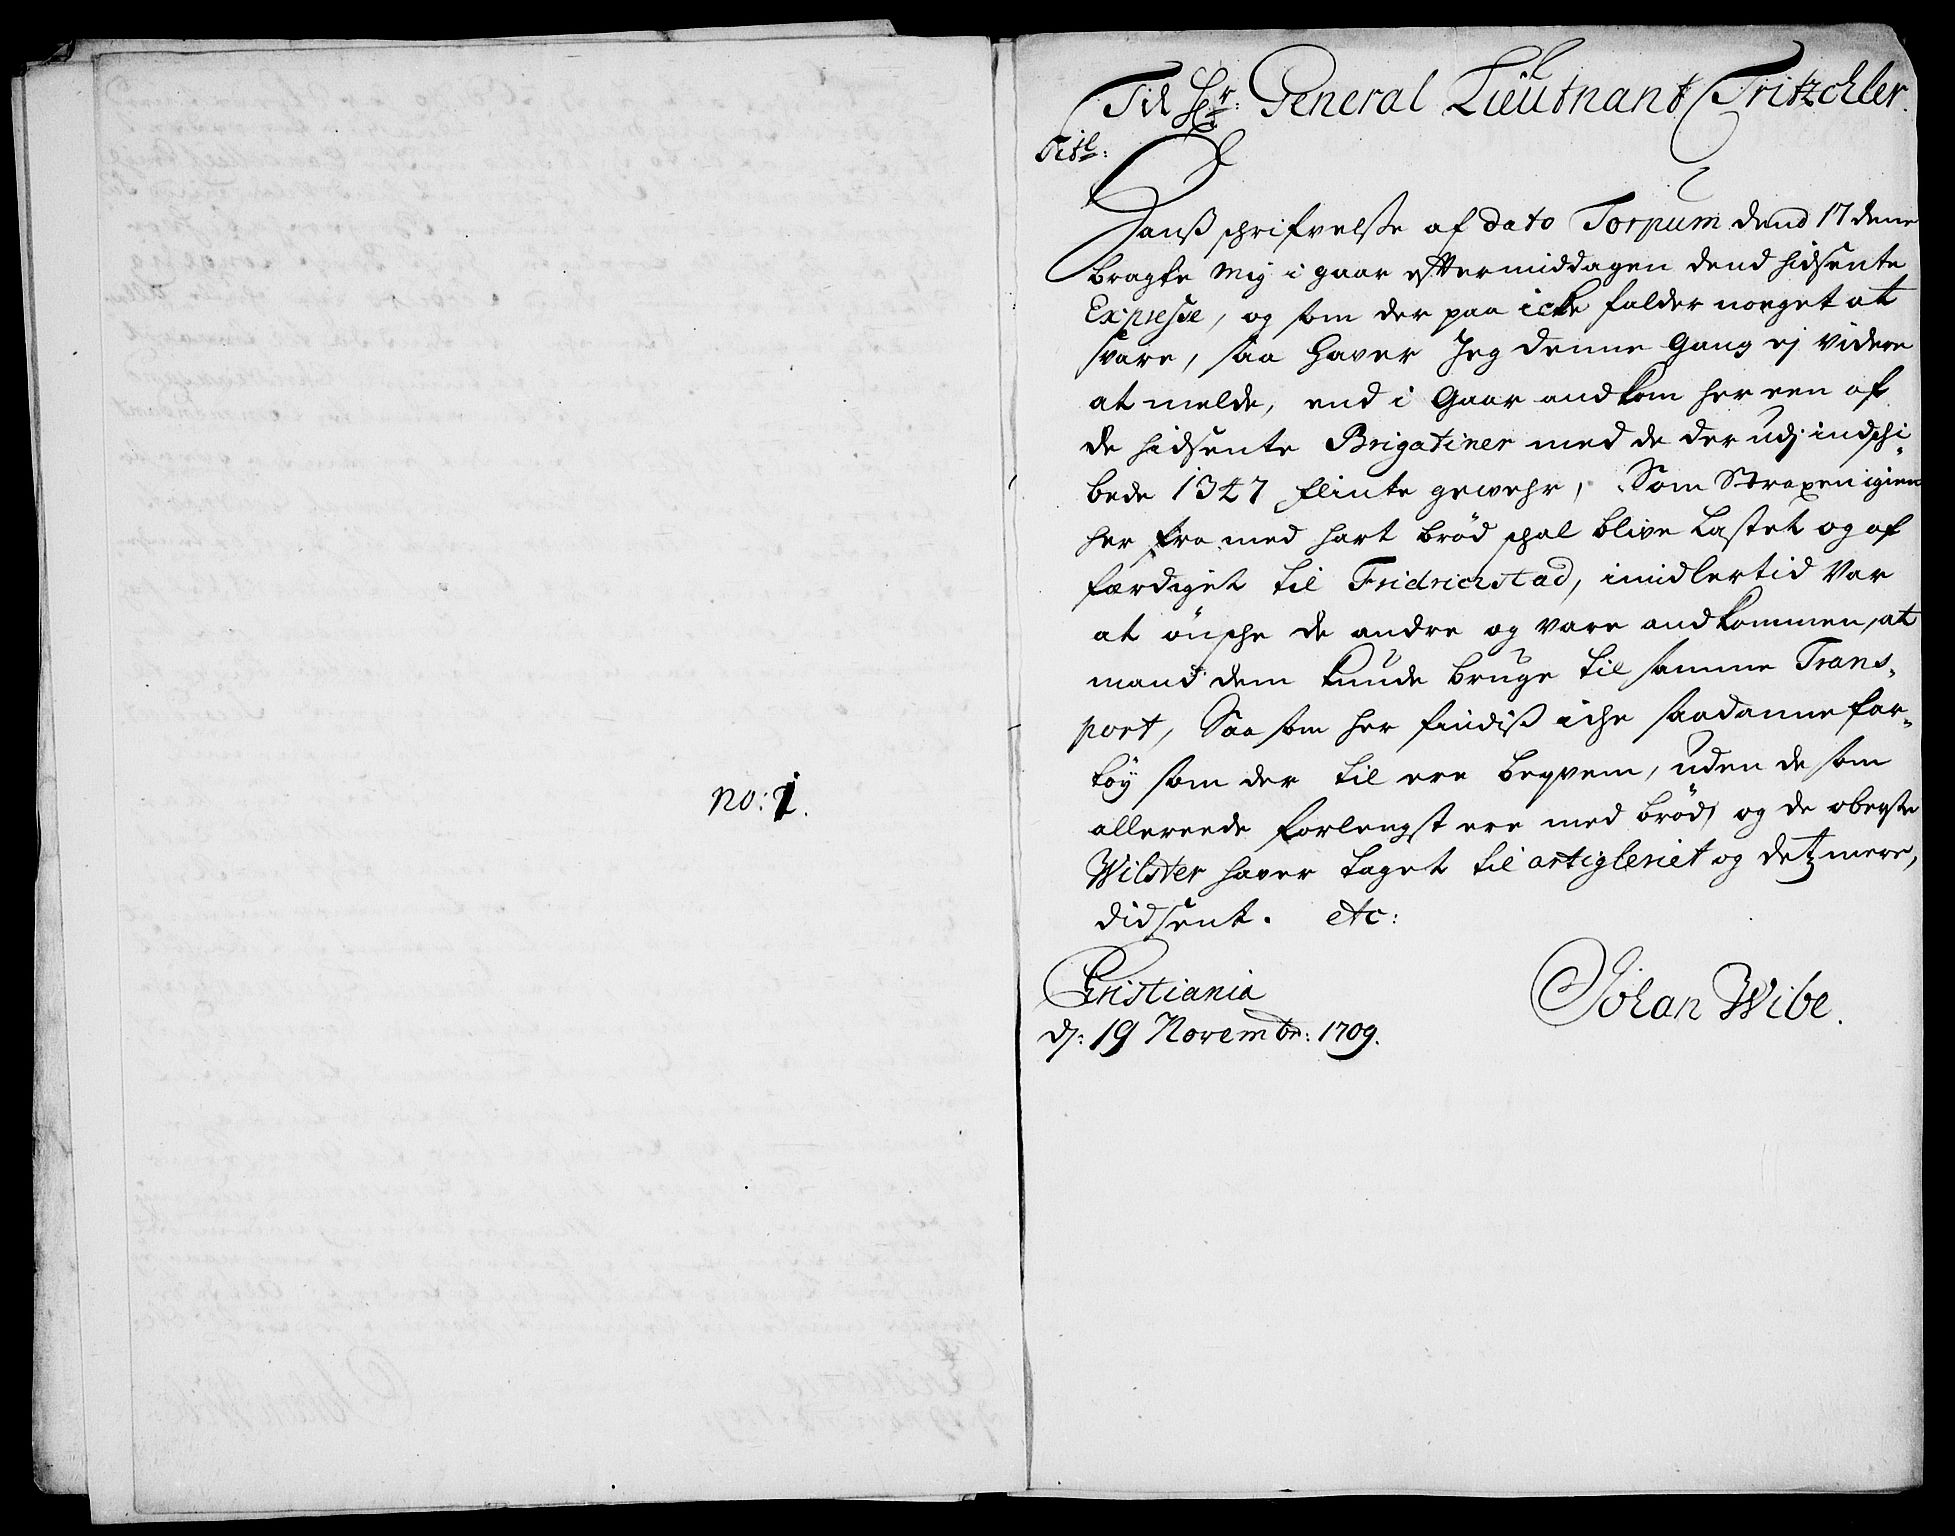 no: 1.
Til Hr: General Lieutnant Tritzchler.
Titl:
Hanß schrifvelße af dato Torpum dend 17 dene
bragte mig i gaar efftermiddagen dend hidsente
Expresse, og som der paa icke falder noeget at
svare, saa haver Jeg denne gang ej videre
at melde, end i Gaar andkom her een af
de hidsente Brigatiner med de der udj indschi-
bede 1347 flinte gewehr, Som Straxen igien
her fra med hart brød schal blive lastet og af
færdiget til Fridrichstad, imidlertid var
at ønsche de andre og vare andkommen, at
mand dem kunde bruge til samme Trans-
port, Saa som her findiß iche saadanne far-
tøy som der til ere beqvem, uden de som
allereede forlengst ere med brød, og de oberste
Wilster haver taget til artigleriet og detz mere,
didsent. etc:
Cristiania
dj: 19 Novembr: 1709.
Johan Wibe.